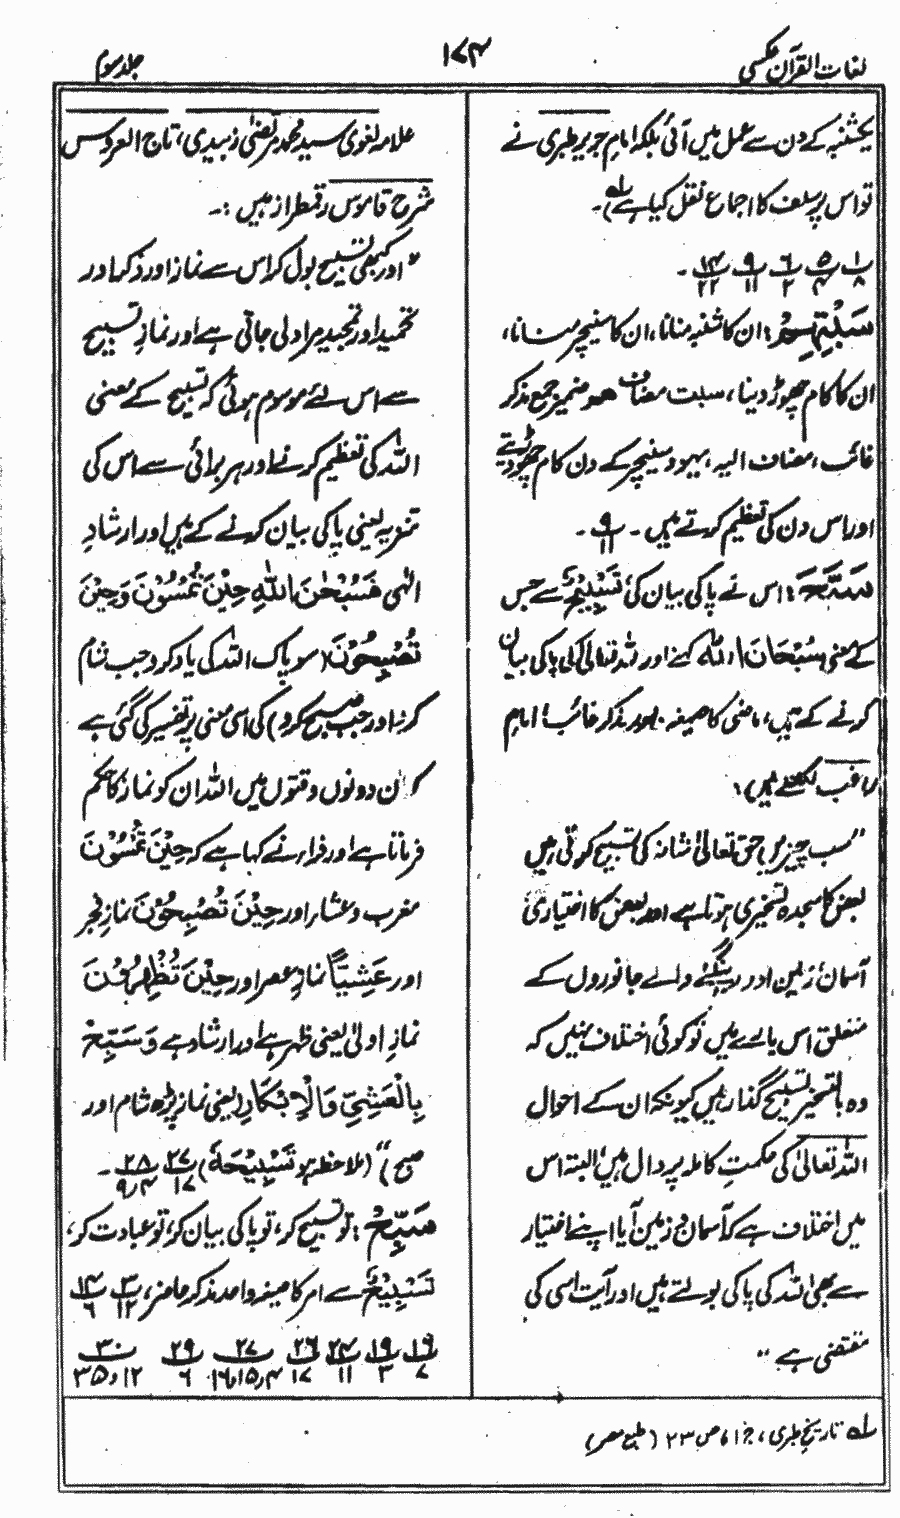 لغات القرآن عکسی
۱۷۴
جلد سوم
یکشنبہ کے دن سے عمل میں آئی بلکہ امام جریر طبری نے
تو اس پر سلف کا اجماع نقل کیا ہے) لہ ۔
۱/۸ ۵/۴ ۶/۲ ۹/۱۱ ۱۴/۲۲ ۔
سَبْتِهِمْ: ان کا شنبہ منانا، ان کا سنیچر منانا،
ان کا کام چھوڑ دینا، سبت مضاف ھم ضمیر جمع مذکر
غائب، مضاف الیہ، یہود سنیچر کے دن کام چھوڑ دیتے
اور اس دن کی تعظیم کرتے ہیں ۔ ۹/۱۱ ۔
سَبَّحَ: اس نے پاکی بیان کی، تَسْبِيْحٌ سے جس
کے معنی سُبْحَانَ اللہ کہنے اور اللہ تعالیٰ کی پاکی بیان
کرنے کے ہیں، ماضی کا صیغہ واحد مذکر غائب، امام
راغب لکھتے ہیں،
"سب چیزیں حق تعالیٰ شانہ کی تسبیح کرتی ہیں
بعض کا سجدہ تسخیری ہوتا ہے اور بعض کا اختیاری
آسمان زمین اور رینگنے والے جانوروں کے
متعلق اس بارے میں تو کوئی اختلاف نہیں کہ
وہ بالتسخیر تسبیح گذار ہیں کیونکہ ان کے احوال
اللہ تعالیٰ کی حکمتِ کاملہ پر دال ہیں، البتہ اس
میں اختلاف ہے کہ آسمان و زمین آیا اپنے اختیار
سے بھی اللہ کی پاکی بولتے ہیں اور آیت اسی کی
مقتضی ہے "
علامہ لغوی سید محمد مرتضیٰ زبیدی، تاج العروس
شرح قاموس رقمطراز ہیں :۔
"اور کبھی تسبیح بول کر اس سے نماز اور ذکر اور
تحمید اور تمجید مراد لی جاتی ہے اور نماز تسبیح
سے اس لئے موسوم ہوئی کہ تسبیح کے معنی
اللہ کی تعظیم کرنے اور ہر برائی سے اس کی
تنزیہ یعنی پاکی بیان کرنے کے ہیں اور ارشادِ
الٰہی فَسُبْحٰنَ اللّٰهِ حِيْنَ تُمْسُوْنَ وَحِيْنَ
تُصْبِحُوْنَ (سو پاک اللہ کی یاد کرو جب شام
کرو اور جب صبح کرو) کی اسی معنی پر تفسیر کی گئی ہے
کہ ان دونوں وقتوں میں اللہ ان کو نماز کا حکم
فرماتا ہے اور فراء نے کہا ہے کہ حِيْنَ تُمْسُوْنَ
مغرب و عشاء اور حِيْنَ تُصْبِحُوْنَ نماز فجر
اور عَشِيًّا نمازِ عصر اور حِيْنَ تُظْهِرُوْنَ
نمازِ اولیٰ یعنی ظہر ہے اور ارشاد ہے وَسَبِّحْ
بِالْعَشِيِّ وَالْاِبْكَارِ یعنی نماز پڑھ شام اور
صبح)" (ملاحظہ ہو تَسْبِيْحَهٗ) ۲۷/۱۷ ۲۸/۹،۴ ۔
سَبِّحْ: تو تسبیح کر، تو پاکی بیان کر، تو عبادت کر،
تَسْبِيْحٌ سے امر کا صیغہ واحد مذکر حاضر، ۳/۱۲ ۱۴/۶
۱۶/۷ ۱۹/۳ ۲۴/۱۱ ۲۶/۱۷ ۲۷/۴،۱۵،۱۶ ۲۹/۶ ۳۰/۱۲،۳۵
لہ تاریخ طبری، ج ۱، ص ۲۳ (طبع مصر)